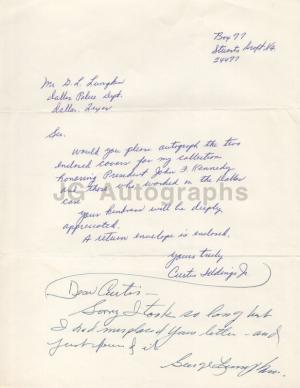 Box 77
Stuarts Draft, Va.
24477
Mr. G. L. Lumpkin
Dallas Police Dept.
Dallas, Texas
Sir:
Would you please autograph the two
enclosed covers for my collection
honoring President John F. Kennedy
and those who worked on the Dallas
case
your kindness will be deeply
appreciated.
A return envelope is enclosed.
Yours truly
Curtis Iddings Jr
JG Autographs
Dear Curtis—
Sorry I took so long but
I had misplaced your letter - and
just found it
George